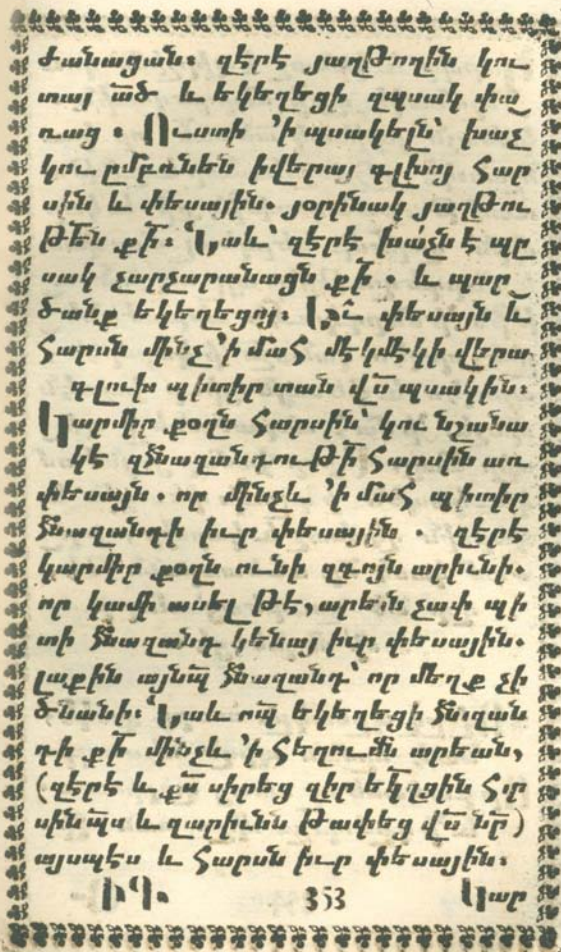 ժանացան։ զէրէ յաղթողին կու
տայ ած և եկեղեցի զպսակ փա
ռաց ։ Ուստի ՚ի պսակելն՝ խաչ
կու ըմբռնեն իվերայ գլխոյ հար
սին և փեսային. յօրինակ յաղթու
թեն քի։ Նաև՝ զէրէ խաչն է պը
սակ չարչարանացն քի . և պար
ծանք եկեղեցոյ։ Եւ փեսայն և
հարսն մինչ ՚ի մահ մէկմէկի վերա
գլուխ պիտիր տան վս պսակին։
Կարմիր քօղն հարսին՝ կու նշանա
կէ զհնազանդութի հարսին առ
փեսայն . որ մինչև ՚ի մահ պիտիր
հնազանդի իւր փեսային . զէրէ
կարմիր քօղն ունի զգոյն արիւնի.
որ կամի ասել թէ, արեան չափ պի
տի հնազանդ կենայ իւր փեսային.
լաքին այնպ հնազանդ՝ որ մեղք չի
ծնանի։ Նաև որպ եկեղեցի հնազան
դի քի մինչև ՚ի հեղումն արեան,
(զէրէ և քս սիրեց զիր եկղցին հր
սինպս և զարիւնս թափեց վս նր)
այսպէս և հարսն իւր փեսային։
ԻԳ. 353 Կար